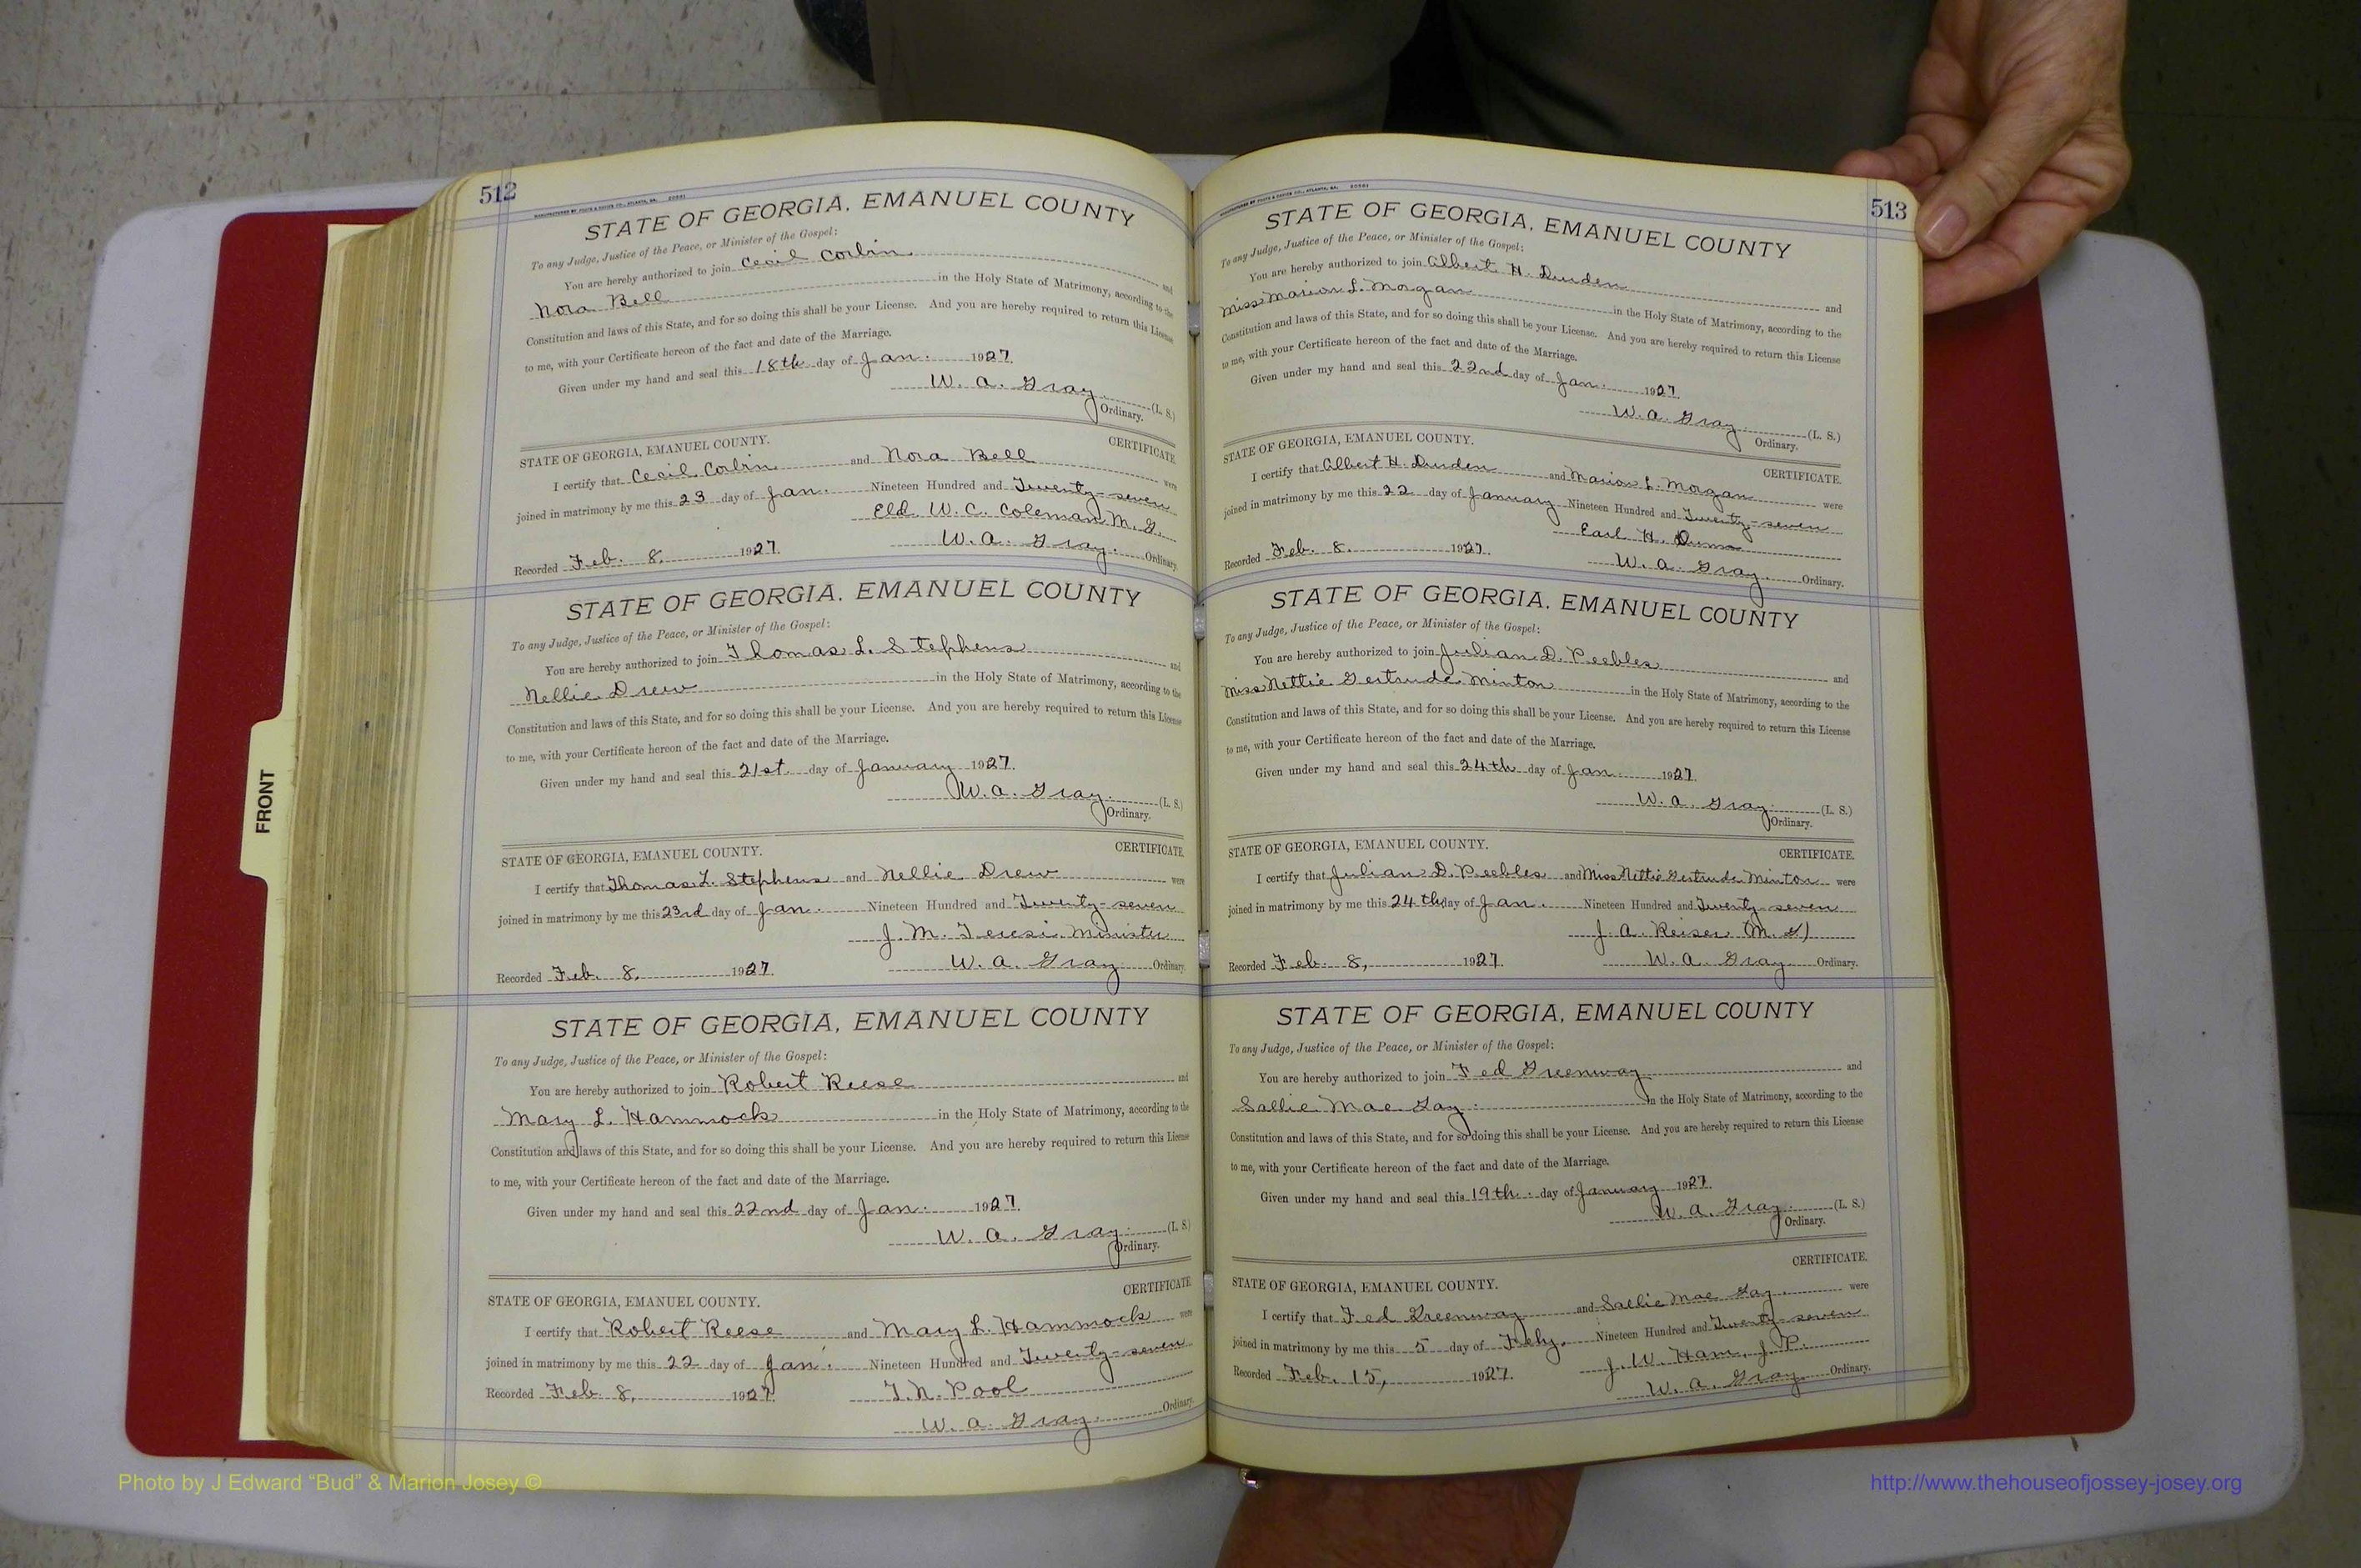 512
STATE OF GEORGIA, EMANUEL COUNTY
To any Judge, Justice of the Peace, or Minister of the Gospel:
You are hereby authorized to join Cecil Corbin and
Nora Bell in the Holy State of Matrimony, according to the
Constitution and laws of this State, and for so doing this shall be your License. And you are hereby required to return this License
to me, with your Certificate hereon of the fact and date of the Marriage.
Given under my hand and seal this 18th day of Jan. 1927.
W. A. Gray (L. S.)
Ordinary.
CERTIFICATE
STATE OF GEORGIA, EMANUEL COUNTY.
I certify that Cecil Corbin and Nora Bell were
joined in matrimony by me this 23 day of Jan. Nineteen Hundred and Twenty-seven
Eld. W. C. Coleman M. G.
Recorded Feb. 8, 1927. W. A. Gray. Ordinary
STATE OF GEORGIA, EMANUEL COUNTY
To any Judge, Justice of the Peace, or Minister of the Gospel:
You are hereby authorized to join Thomas L. Stephens and
Nellie Drew in the Holy State of Matrimony, according to the
Constitution and laws of this State, and for so doing this shall be your License. And you are hereby required to return this License
to me, with your Certificate hereon of the fact and date of the Marriage.
Given under my hand and seal this 21st. day of January 1927.
W. A. Gray. (L. S.)
Ordinary.
CERTIFICATE
STATE OF GEORGIA, EMANUEL COUNTY.
I certify that Thomas L. Stephens and Nellie Drew were
joined in matrimony by me this 23rd day of Jan. Nineteen Hundred and Twenty-seven
J. M. Minister
Recorded Feb. 8, 1927. W. A. Gray Ordinary
STATE OF GEORGIA, EMANUEL COUNTY
To any Judge, Justice of the Peace, or Minister of the Gospel:
You are hereby authorized to join Robert Reese and
Mary L. Hammock in the Holy State of Matrimony, according to the
Constitution and laws of this State, and for so doing this shall be your License. And you are hereby required to return this License
to me, with your Certificate hereon of the fact and date of the Marriage.
Given under my hand and seal this 22nd day of Jan. 1927.
W. A. Gray. (L. S.)
Ordinary.
CERTIFICATE
STATE OF GEORGIA, EMANUEL COUNTY.
I certify that Robert Reese and Mary L. Hammock were
joined in matrimony by me this 22 day of Jan. Nineteen Hundred and Twenty-seven
Recorded Feb 8, 1927. T. N. Pool
W. A. Gray. Ordinary
513
STATE OF GEORGIA, EMANUEL COUNTY
To any Judge, Justice of the Peace, or Minister of the Gospel:
You are hereby authorized to join Albert H. Durden and
Miss Marion L. Morgan in the Holy State of Matrimony, according to the
Constitution and laws of this State, and for so doing this shall be your License. And you are hereby required to return this License
to me, with your Certificate hereon of the fact and date of the Marriage.
Given under my hand and seal this 22nd day of Jan. 1927.
W. A. Gray. (L. S.)
Ordinary.
CERTIFICATE.
STATE OF GEORGIA, EMANUEL COUNTY.
I certify that Albert H. Durden and Marion L. Morgan were
joined in matrimony by me this 22 day of January Nineteen Hundred and Twenty-seven
Earl H.
Recorded Feb. 8. 1927. W. A. Gray. Ordinary.
STATE OF GEORGIA, EMANUEL COUNTY
To any Judge, Justice of the Peace, or Minister of the Gospel:
You are hereby authorized to join Julian D. Peebles and
Miss Nettie Gertrude Minton in the Holy State of Matrimony, according to the
Constitution and laws of this State, and for so doing this shall be your License. And you are hereby required to return this License
to me, with your Certificate hereon of the fact and date of the Marriage.
Given under my hand and seal this 24th day of Jan. 1927.
W. A. Gray. (L. S.)
Ordinary.
CERTIFICATE.
STATE OF GEORGIA, EMANUEL COUNTY.
I certify that Julian D. Peebles and Miss Nettie Gertrude Minton were
joined in matrimony by me this 24th day of Jan. Nineteen Hundred and Twenty-seven
J. A. Reiser (M. G)
Recorded Feb. 8, 1927. W. A. Gray Ordinary.
STATE OF GEORGIA, EMANUEL COUNTY
To any Judge, Justice of the Peace, or Minister of the Gospel:
You are hereby authorized to join Fed Greenway and
Sallie Mae Gay. in the Holy State of Matrimony, according to the
Constitution and laws of this State, and for so doing this shall be your License. And you are hereby required to return this License
to me, with your Certificate hereon of the fact and date of the Marriage.
Given under my hand and seal this 19th. day of January 1927.
W. A. Gray. (L. S.)
Ordinary.
CERTIFICATE.
STATE OF GEORGIA, EMANUEL COUNTY.
I certify that Fed Greenway and Sallie Mae Gay. were
joined in matrimony by me this 5 day of Feby. Nineteen Hundred and Twenty-seven
J. W. Ham, J. P.
Recorded Feb. 15, 1927. W. A. Gray Ordinary.
FRONT
Photo by J Edward “Bud” & Marion Josey ©
http://www.thehouseofjossey-josey.org